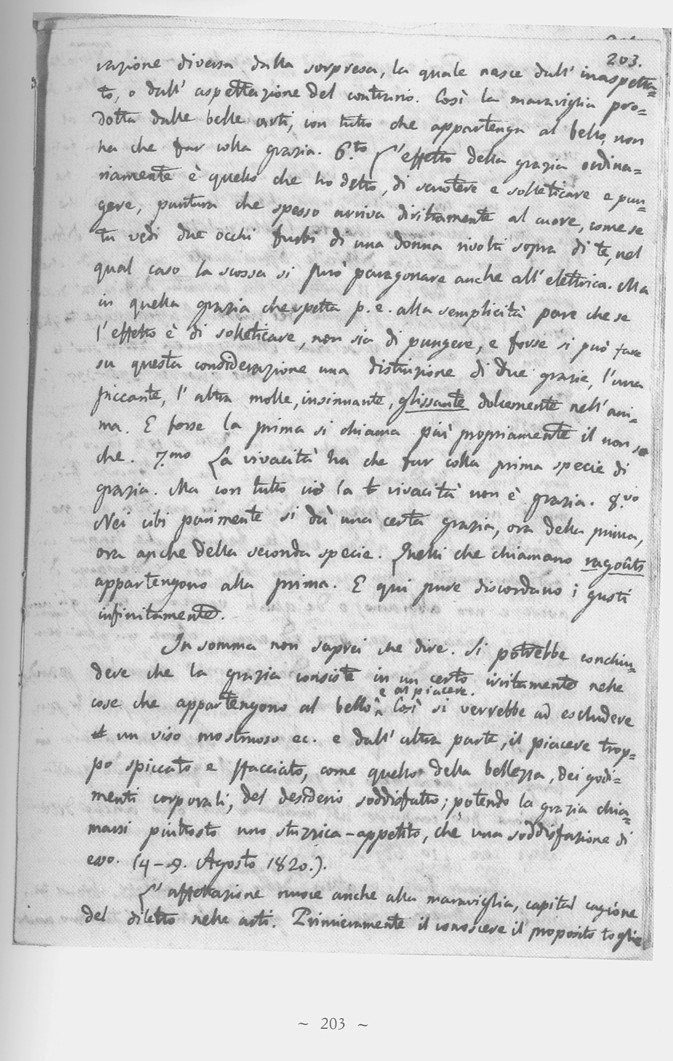 203.
razione diversa dalla sorpresa, la quale nasce dall' inaspetta-
to, o dall' aspettazione del contrario. Così la maraviglia pro-
dotta dalle belle arti, con tutto che appartenga al bello, non
ha che far colla grazia. 6.to L'effetto della grazia ordina-
riamente è quello che ho detto, di scuotere e solleticare e pun-
gere, puntura che spesso arriva dirittamente al cuore, come se
tu vedi due occhi furbi di una donna rivolti sopra di te, nel
qual caso la scossa si può paragonare anche all' elettrica. Ma
in quella grazia che spetta p. e. alla semplicità pare che se
l'effetto è di solleticare, non sia di pungere, e forse si può fare
su questa considerazione una distinzione di due grazie, l'una
piccante, l'altra molle, insinuante, glissante dolcemente nell' ani-
ma. E forse la prima si chiama più propriamente il non so
che. 7.mo La vivacità ha che far colla prima specie di
grazia. Ma con tutto ciò la vivacità non è grazia. 8.vo
Nei cibi parimente si dà una certa grazia, ora della prima,
ora anche della seconda specie. Quelli che chiamano ragoûts
appartengono alla prima. E qui pure discordano i gusti
infinitamente.
In somma non saprei che dire. Si potrebbe conchiu-
dere che la grazia consiste in un certo irritamento nelle
cose che appartengono al bello e al piacere. Così si verrebbe ad escludere
un viso mostruoso ec. e dall' altra parte, il piacere trop-
po spiccato e sfacciato, come quello della bellezza, dei godi-
menti corporali, del desiderio soddisfatto; potendo la grazia chia-
marsi piuttosto uno stuzzica-appetito, che una soddisfazione di
esso. (4-9. Agosto 1820.).
L'affettazione nuoce anche alla maraviglia, capital cagione
del diletto nelle arti. Primieramente il conoscere il proposito toglie
~ 203 ~